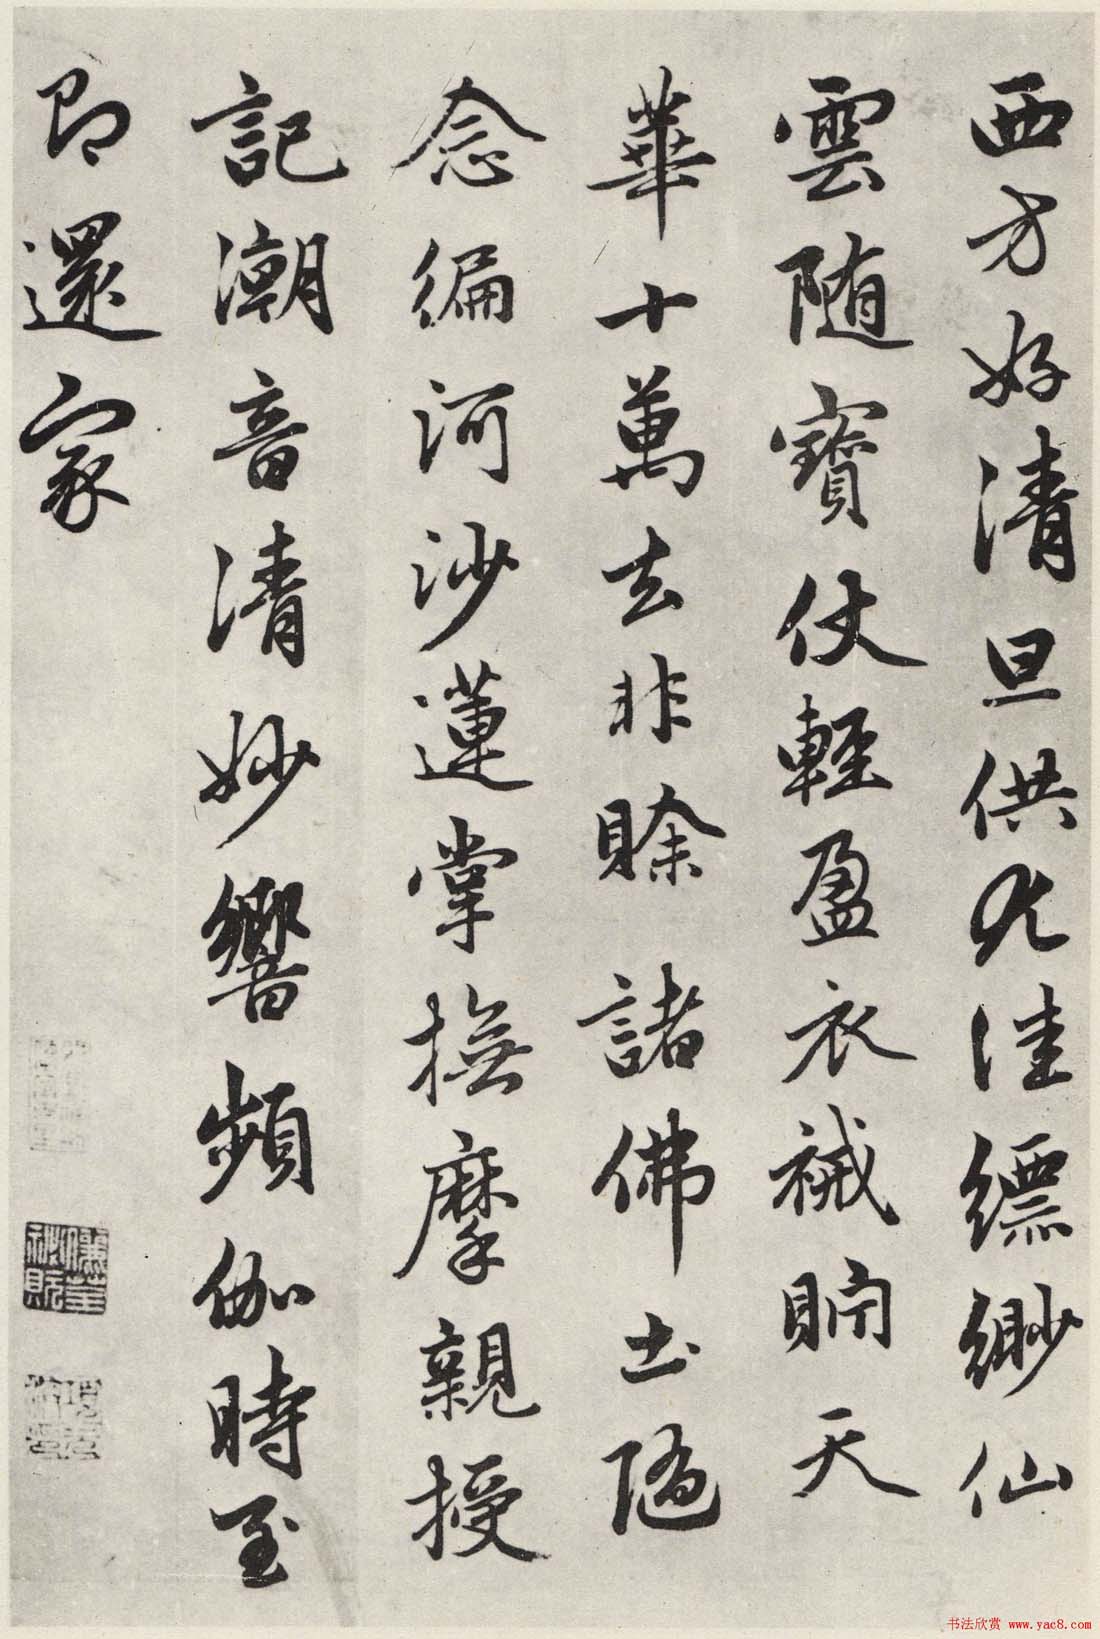 西方好清旦供尤佳縹緲仙
雲随寶仗輕盈衣祴貯天
華十萬去非賖諸佛土随
念徧河沙蓮掌撫摩親授
記潮音清妙響頻伽時至
即還家
书法欣赏 www.yac8.com